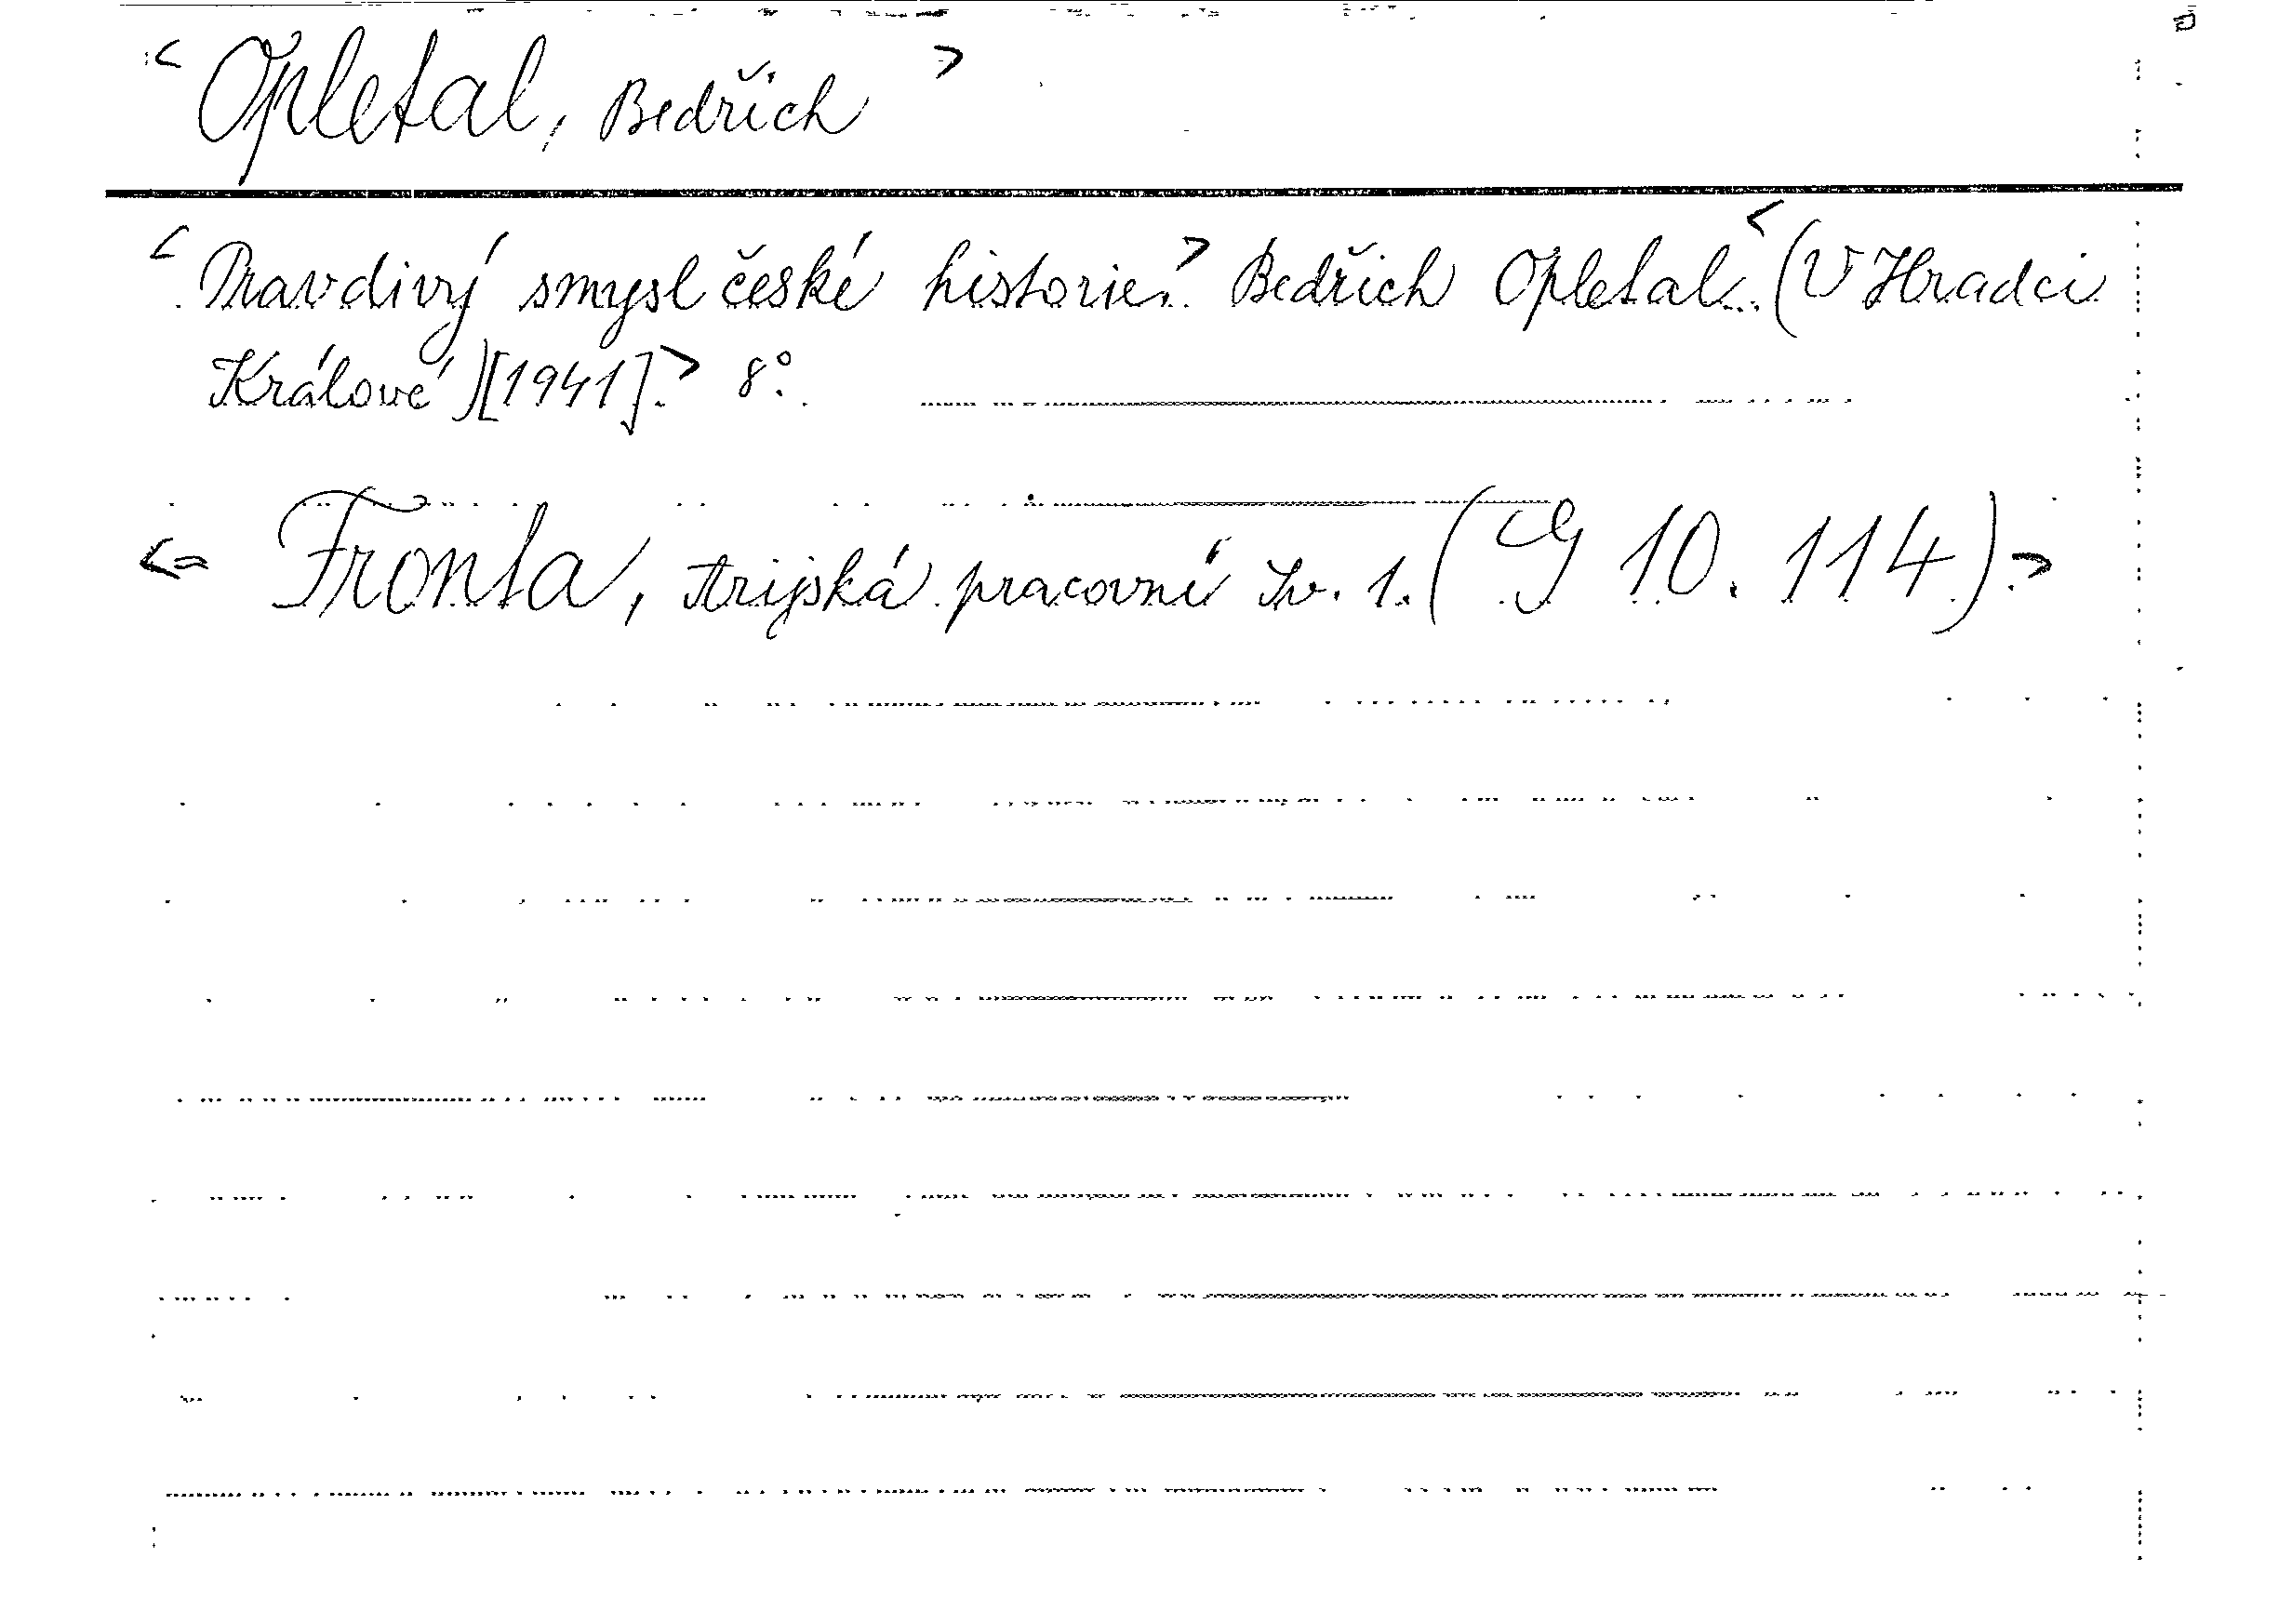 < Opletal, Bedřich >
< Pravdivý smysl české historie.> Bedřich Opletal. < (V Hradci
Králové)[1941].> 8°.
<= Fronta, Arijská pracovní Sv. 1. (G 10.114).=>